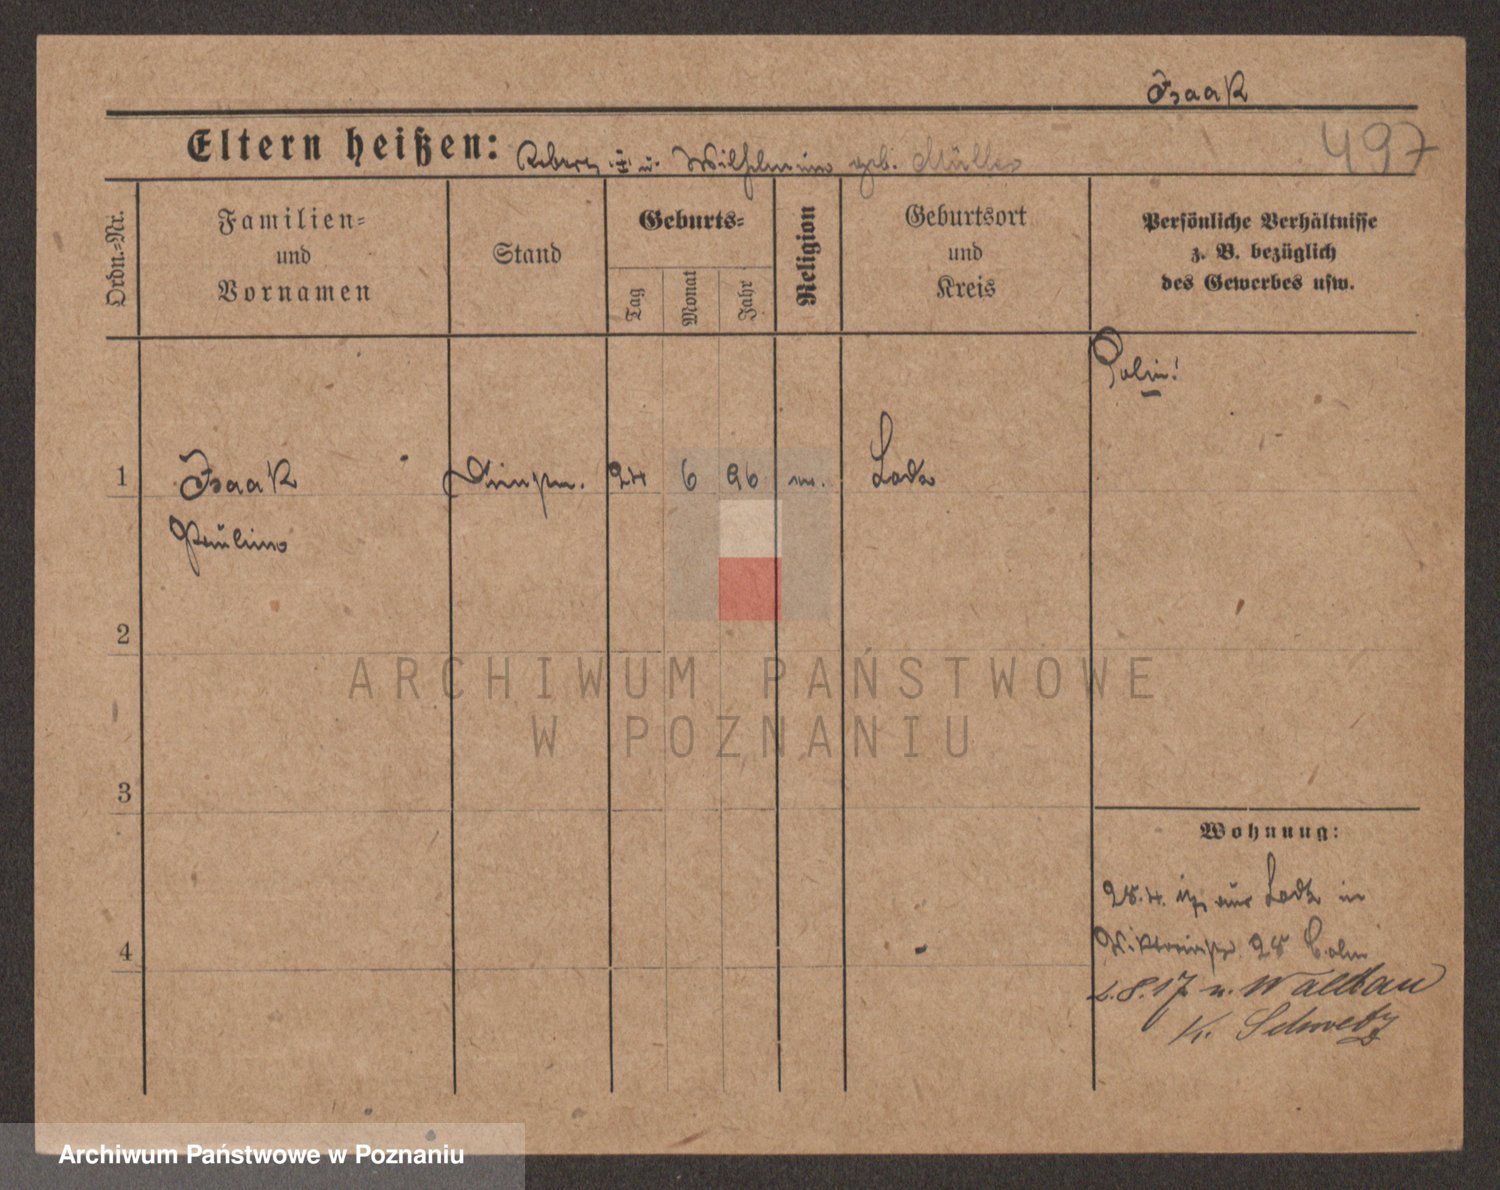 Isaak
497
Eltern heißen: Robert ‡ u. Wilhelmine geb. Müller
Ordn.=Nr.
Familien=
und
Vornamen
Stand
Geburts=
Tag
Monat
Jahr
Religion
Geburtsort
und
Kreis
Persönliche Verhältnisse
z. B. bezüglich
des Gewerbes usw.
Polin!
1
Isaak
24 6 96
Lodz
Pauline
2
ARCHIWUM PAŃSTWOWE
W POZNANIU
3
Wohnung:
28.4. 17 aus Lodz in
28
4
2.8.17 n. Waldau
K. Schwetz
Archiwum Państwowe w Poznaniu